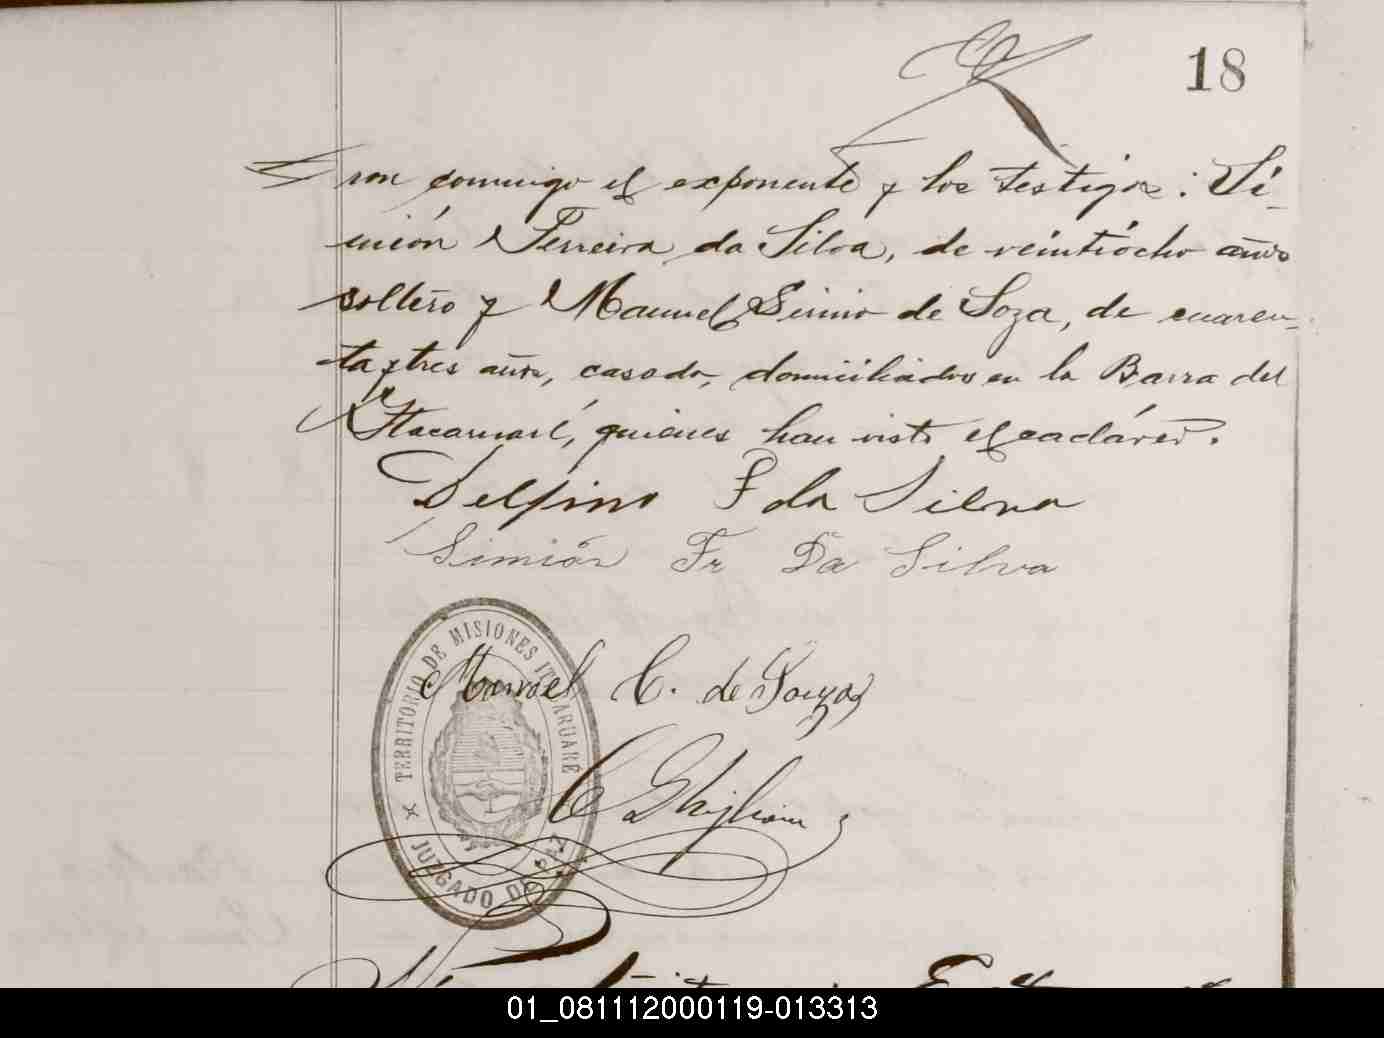 18
ron conmigo el exponente y los testigos: Si-
mión Ferreira da Silva, de veintiocho años
soltero y Manuel de Soza, de cuaren-
ta y tres años, casado, domiciliados en la Barra del
Itacaruaré, quienes han visto el cadáver.
Delfino F da Silva
Simión Fr Da Silva
TERRITORIO DE MISIONES ITACARUARÉ
Manoel C. de Souza
C Ghiglione
JUZGADO DE PAZ
01_081112000119-013313